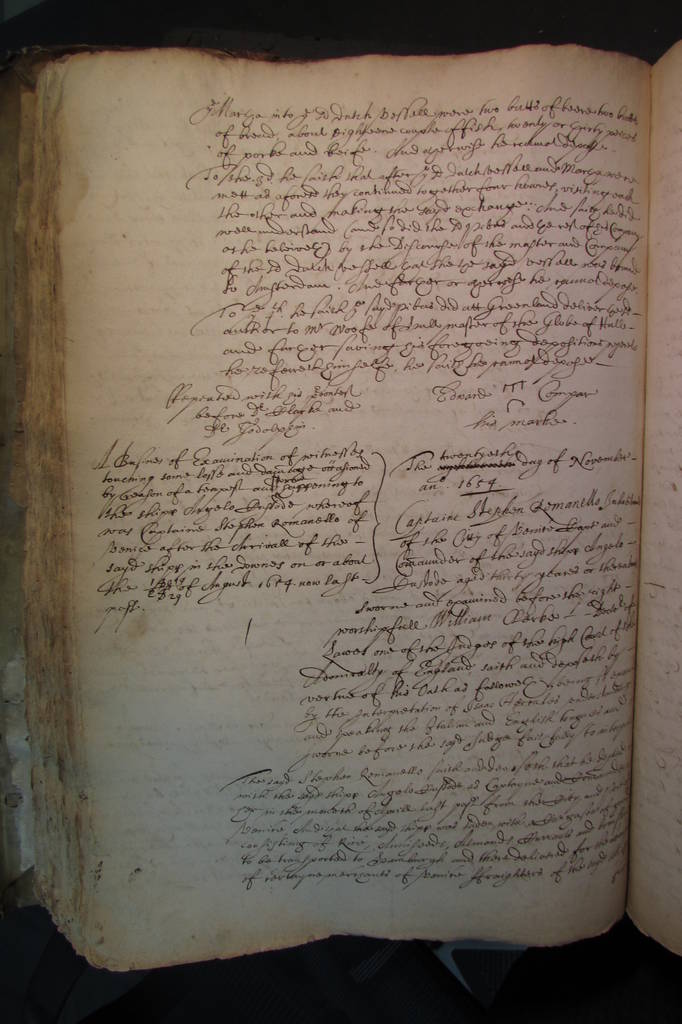 ye Martha into ye sd dutch vessell were two butts of beere two
of bread, about Eighteene couple of fish, twenty or thirty peeces
of porke and beife. And otherwise he cannot depose.
To the 3d he saith that after ye sd dutch vessell and Martha were
mett as aforesd they continued together four howers, visiting each
the other and making the sayd exchange. And saith he did
well understand (and so did the and the rest of his Company
as he beleiveth) by the discourse of the master and Company
of the sd dutch vessell that she the sayd vessell was bound
to Amsterdam. And further or otherwise he cannot depose.
To ye 4th he saith ye did att Greenland deliver
anchor to Mr Woolfe of Hull master of the Globe of Hull
and further saving his foregoeing deposition
he referreth himselfe, he saith he cannot depose
Repeated with his Contest
before Dr Clarke and
Dr Godolphin.
Edward Compar
his marke.
A Busines of Examination of witnesses
touching some losse and damage occasioned
by reason of a tempest and storme happening to
the shipp Angelo Custode whereof
was Captaine Stephen Romanello of
Venice after the Arrivall of the
sayd shipp in the downes on or about
the of August 1654 now last
past.
The twentyeth day of November
ano. 1654
Captaine Stephen Romanello
of the City of Venice Capt and
Comander of the sayd shipp Angelo
Custode aged thirty yeares or thereabouts
sworne and examined before the right
worshipfull William Clerke Doctor of
Lawes one of the Judges of the high Court of the
Admiralty of England, saith and deposeth by
vertue of his Oath as followeth
by the Interpretation of Isaac
and speaking the Italian and English tongues and
sworne before the sayd Judge faithfully to
The sayd Stephen Romanello saith and deposeth that he
with the sayd shipp Angelo Custode as Captayne and
in the moneth of Aprill last past from the City and
Venice, And that the sayd shipp was laden with a
consisting of Rice, Anniseeds, Almonds, and
to be transported to Hamburgh and there delivered for the
of certayne merchants of Venice ffraighters of the sayd